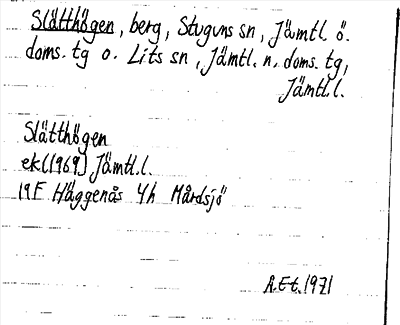 Slätthögen, berg, Stuguns sn, Jämtl. ö.
doms. tg o. Lits sn, Jämtl. n. doms. tg,
Jämtl.l.
Slätthögen
ek(1969) Jämtl.l.
19F Häggenås 4h Mårdsjö
A.Et.1971